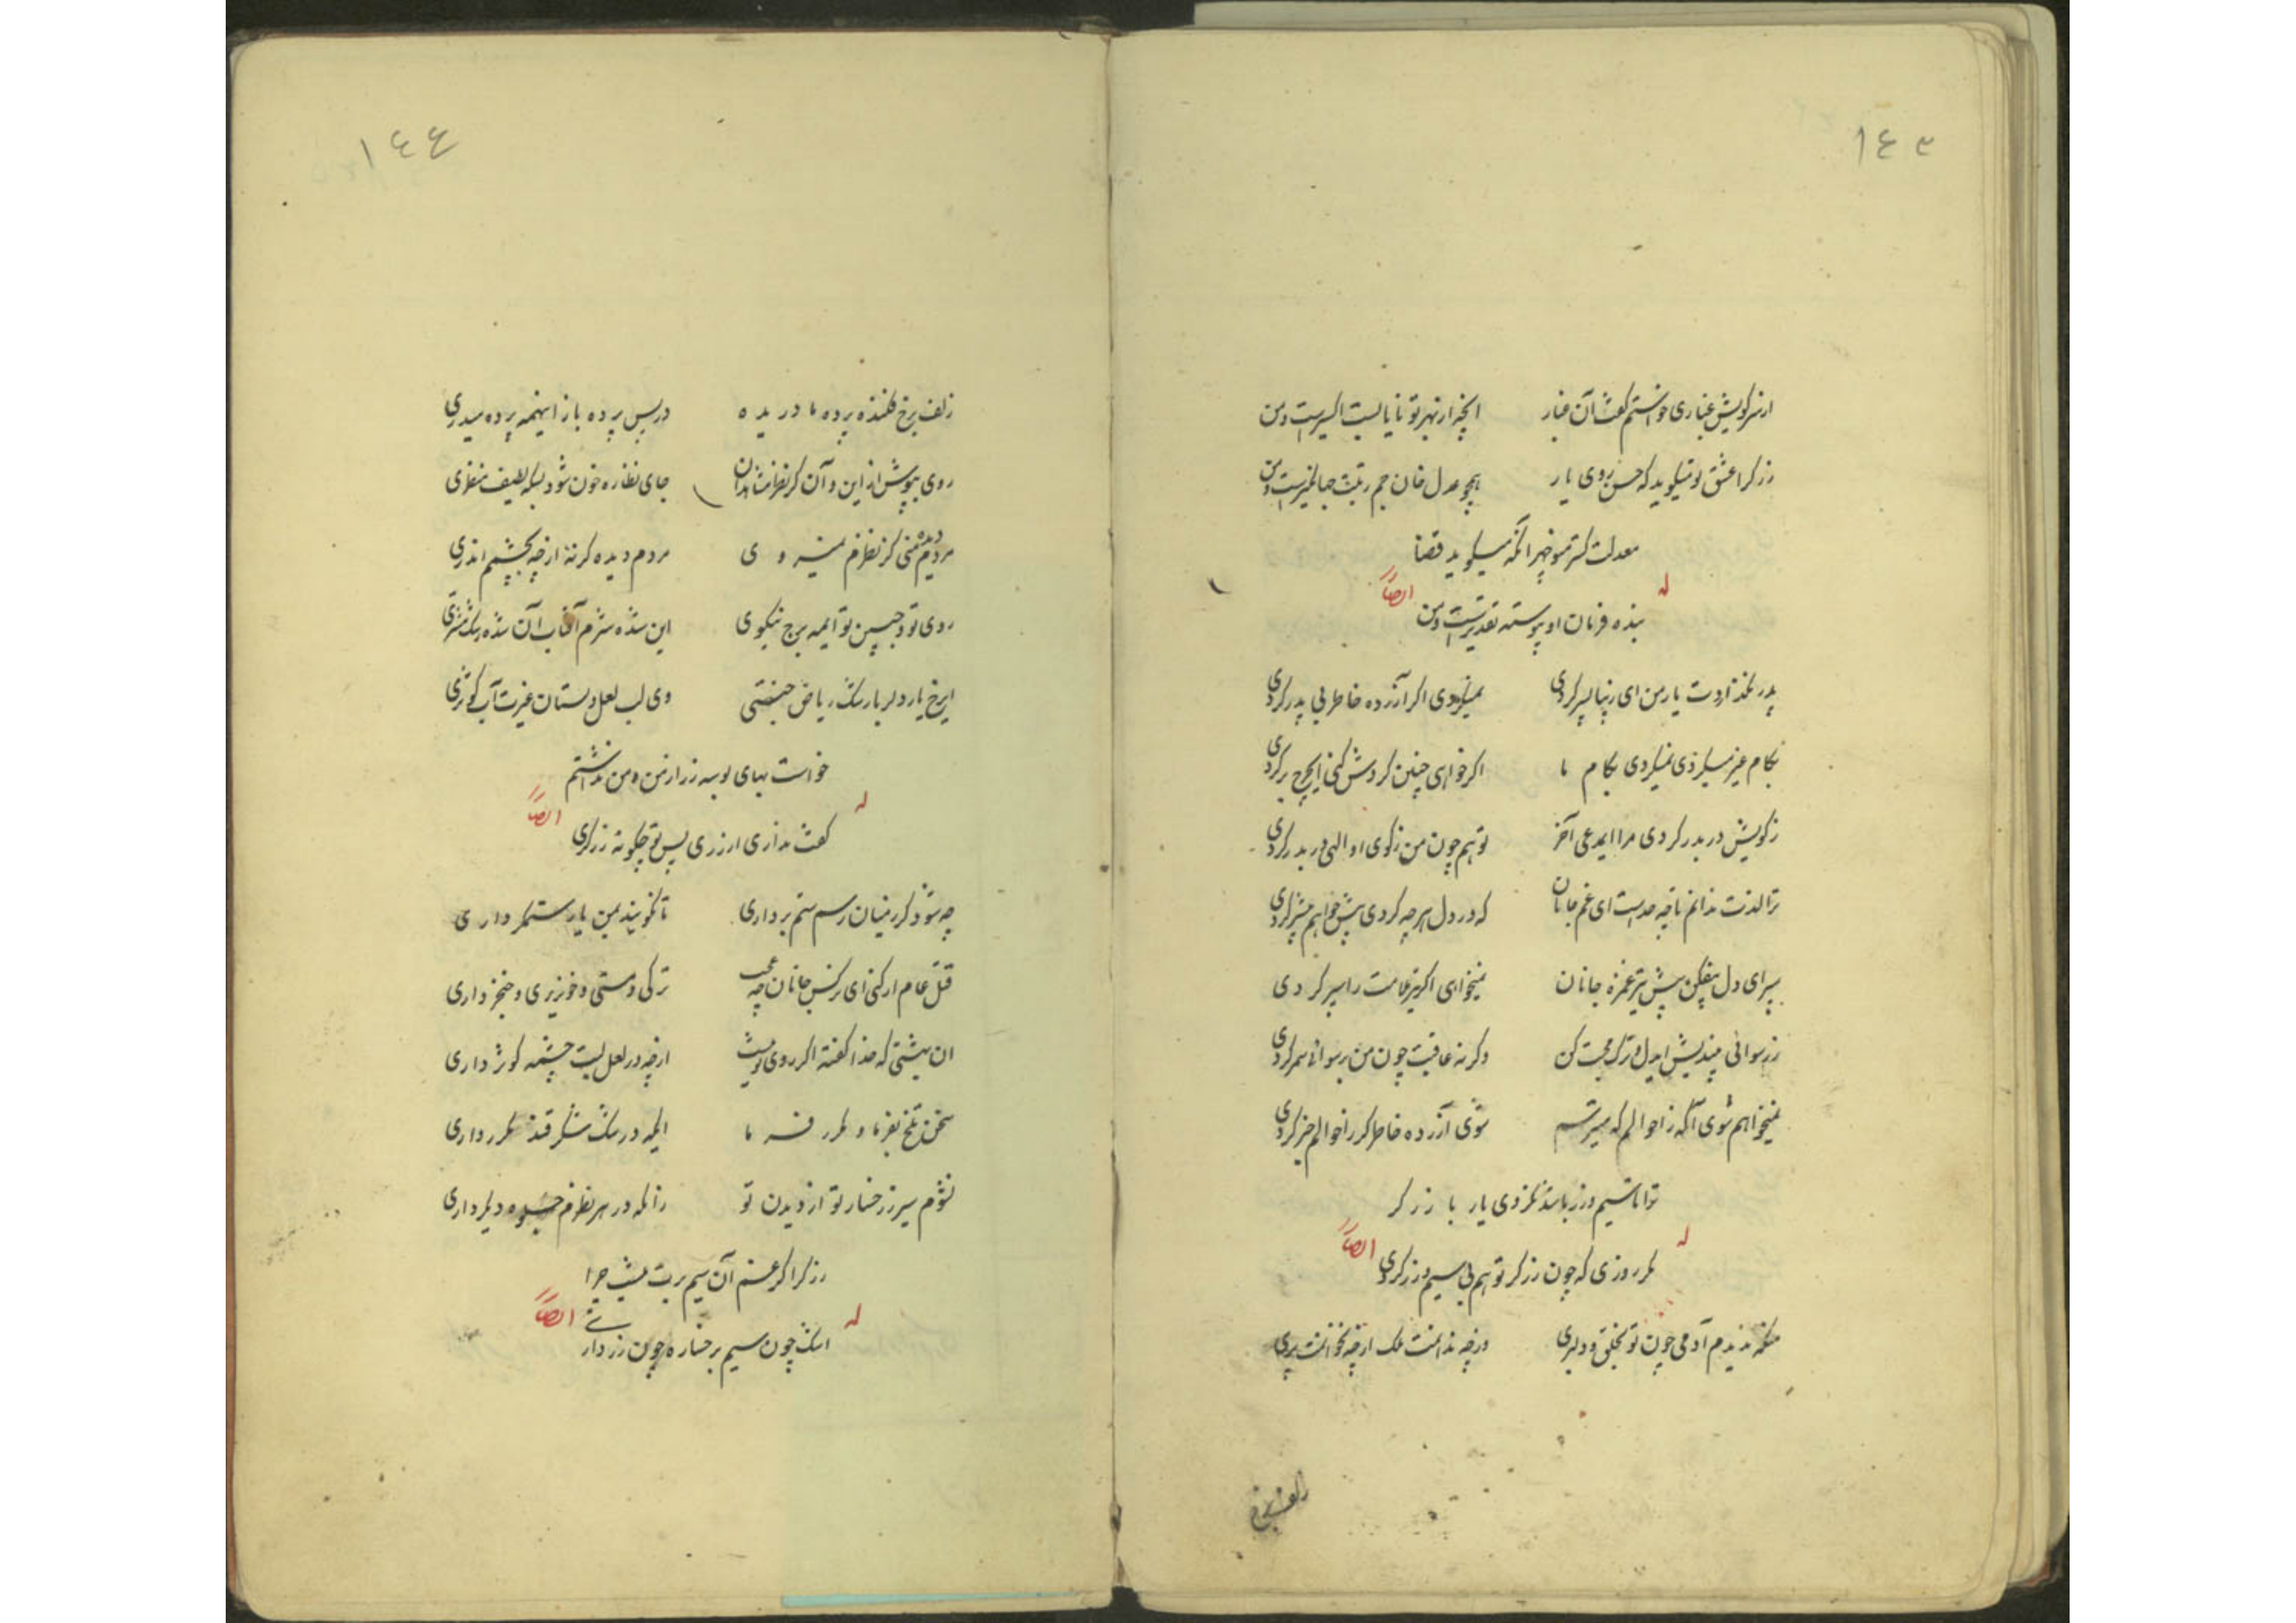 ۱۴۳
از سر کویش غباری خواستم گفت آن غبار آنچه از بهر تو نایابست اکسیرست و من
زرگرا عشق تو میگوید که حسن روی یار همچو عدل خان جم رتبت جهانگیرست و من
معدلت گستر منوچهر آنکه میگوید قضا
بنده فرمان او پیوسته تقدیرست و من
له ایضاً
پدر نگذاردت یار من ای زیبا پسر کردی نمیکردی اگر آزرده خاطر بی پدر کردی
بکام غیر میکردی نمیکردی بکام ما اگر خواهی چنین گردش کنی ای چرخ برگردی
ز کویش در بدر کردی مرا ای مدعی آخر تو هم چون من ز کوی او الهی در بدر گردی
ترا لذت ندانم تا چه حدست ای غم جانان که در دل هر چه گردی بیش خواهم بیشتر گردی
سپر ای دل بیفکن پیش تیر غمزه جانان نمیخواهی اگر تیر ملامت را سپر گردی
ز رسوائی میندیش ایدل و ترک محبت کن وگرنه عاقبت چون من برسوائی سمر گردی
نمیخواهم شوی آگه ز احوالم که میترسم شوی آزرده خاطر گر ز احوالم خبر گردی
ترا تا سیم و زر باشد نگردی یار با زرگر
مگر روزی که چون زرگر تو هم بی سیم و زر گردی
له ایضاً
منکه ندیدم آدمی چون تو بخلق و دلبری ورچه ندانمت ملک ازچه نخوانمت پری
زلف برخ
۱۴۴
زلف برخ فکنده پرده ما دریده در پس پرده باز اینهمه پرده میدری
روی بپوش از این و آن کز نظر نشان جای نظاره خون شود بسکه لطیف منظری
مردم دیده منی کز نظرم نمیروی مردم دیده گر نه ازچه بچشم اندری
روی تو و جبین تو ایمه برج نیکوی این شده شرم آفتاب آن شده رشک مشتری
ای رخ یار دلربا رشک ریاض جنتی وی لب لعل دلستان غیرت آب کوثری
خواست بهای بوسه زر از من و من نداشتم
گفت نداری ار زری پس تو چگونه زرگری
له ایضاً
چه شود گر ز میان رسم ستم برداری تا نگویند بمن یار ستمگر داری
قتل عام ار کنی ای نرگس جانان چه عجب ترکی و مستی و خونریزی و خنجر داری
آن بهشتی که خدا گفته اگر روی تو نیست ازچه در لعل لبت چشمه کوثر داری
سخن تلخ بفرما و مکرر فرما ایکه در تنگ شکر قند مکرر داری
نشوم سیر ز رخسار تو از دیدن تو زانکه در هر نظرم جلوه دیگر داری
زرگرا گر غم آن سیم برت نیست چرا
اشک چون سیم بر رخساره چون زر داری
له ایضاً